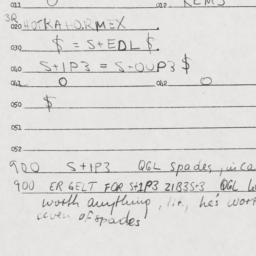 011 O 012 KLMS
3R
020 HOTKAHORMEX
030 $ = S+EDL $
040 S+1P3 = S-OUP3 $
041 O 042 O
050 $
051
052
900 S+1P3 QGL spades,
900 ER GELT FOR S+1P3 21B3S+3 QGL
worth anything, he's
of spades